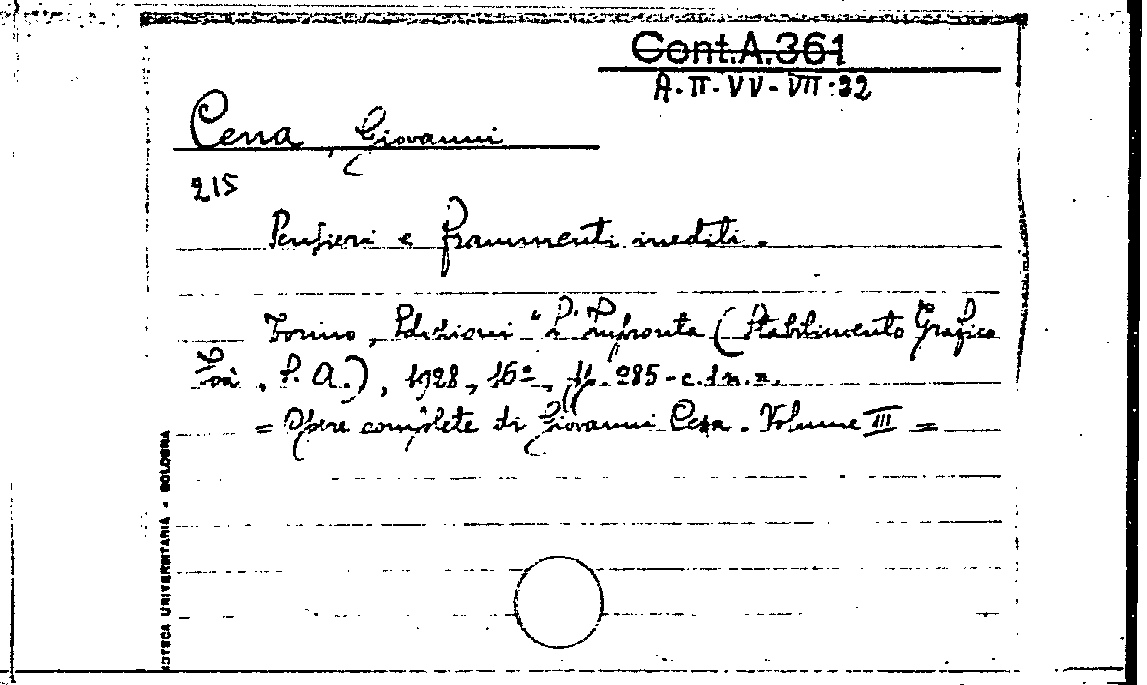 Cont.A.361
A-II-VV-VII:32
Cena, Giovanni
215
Pensieri e frammenti inediti.
Torino, Edizioni "L'Impronta (Stabilimento Grafico
S. A.), 1928, 16º, pp. 285-c.1 n.n.
= Opere complete di Giovanni Cena. Volume III =
OTECA UNIVERSITARIA - BOLOGNA